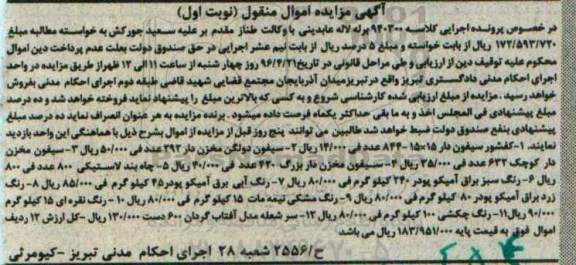 آگهی مزایده اموال منقول (نوبت اول)
در خصوص پرونده اجرایی کلاسه ۹۴۰۳۰۰ برله لاله عابدینی با وکالت طناز مقدم بر علیه سعید جورکش به خواسته مطالبه مبلغ
۱۷۲/۵۹۳/۷۲۰ ریال از بابت خواسته و مبلغ ۵ درصد ریال از بابت نیم عشر اجرایی در حق صندوق دولت بعلت عدم پرداخت دین اموال
محکوم علیه توقیف دین از ارزیابی و طی مراحل قانونی در تاریخ ۹۶/۴/۲۱ روز چهار شنبه از ساعت ۱۱ الی ۱۲ ظهر از طریق مزایده در واحد
اجرای احکام مدنی دادگستری تبریز واقع در تبریز میدان آذربایجان مجتمع قضایی شهید قاضی طبقه دوم اجرای احکام مدنی بفروش
خواهد رسید. مزایده از مبلغ ارزیابی شده کارشناسی شروع و به کسی که بالاترین مبلغ را پیشنهاد نماید فروخته خواهد شد و ده درصد
مبلغ پیشنهادی فی المجلس اخذ و به ما بقی حداکثر یکماه فرصت داده میشود. برنده مزایده به هر عنوان انصراف نماید ده درصد مبلغ
پیشنهادی بنفع صندوق دولت ضبط خواهد شد طالبین می توانند پنج روز قبل از مزایده از اموال بشرح ذیل با هماهنگی این واحد بازدید
نمایند. ۱-کفشور سیفون دار ۱۵×۱۵-۸۴۴ عدد فی ۱۴/۰۰۰ ریال ۲-سیفون دولگن مخزن دار ۳۹۲ عدد فی ۵۰/۰۰۰ ریال ۳-سیفون مخزن
دار کوچک ۶۳۲ عدد فی ۳۵/۰۰۰ ریال ۴-سیفون مخزن دار بزرگ ۴۴۰ عدد فی ۴۰/۰۰۰ ریال ۵- چاه بند لاستیکی ۸۰۰ عدد فی ۸۰۰
ریال ۶-رنگ سبز براق آمیکو پودر ۲۴۰ کیلو گرم فی ۸۰/۰۰۰ ریال ۷-رنگ آبی برق آمیکو پودر ۴۵ کیلو گرم فی ۸۵/۰۰۰ ریال ۸-رنگ
زرد براق آمیکو پودر ۸۰ کیلو گرم فی ۸۰/۰۰۰ ریال ۹-رنگ مشکی نیمه مات ۱۵ کیلو گرم فی ۸۰/۰۰۰ ریال ۱۰-رنگ نقره ای ۱۵ کیلو گرم
۹۰/۰۰۰ ریال ۱۱-رنگ چکشی ۱۰۰ کیلو گرم فی ۸۰/۰۰۰ ریال ۱۲-سر شعله مدل آفتاب گردان ۶۰۰ دست ۱۳۰/۰۰۰ ریال -کل ارزش ۱۲ ردیف
اموال فوق به قیمت پایه ۱۸۳/۹۵۱/۰۰۰ ریال می باشد
ح/۲۵۵۶ شعبه ۲۸ اجرای احکام مدنی تبریز -کیومرثی